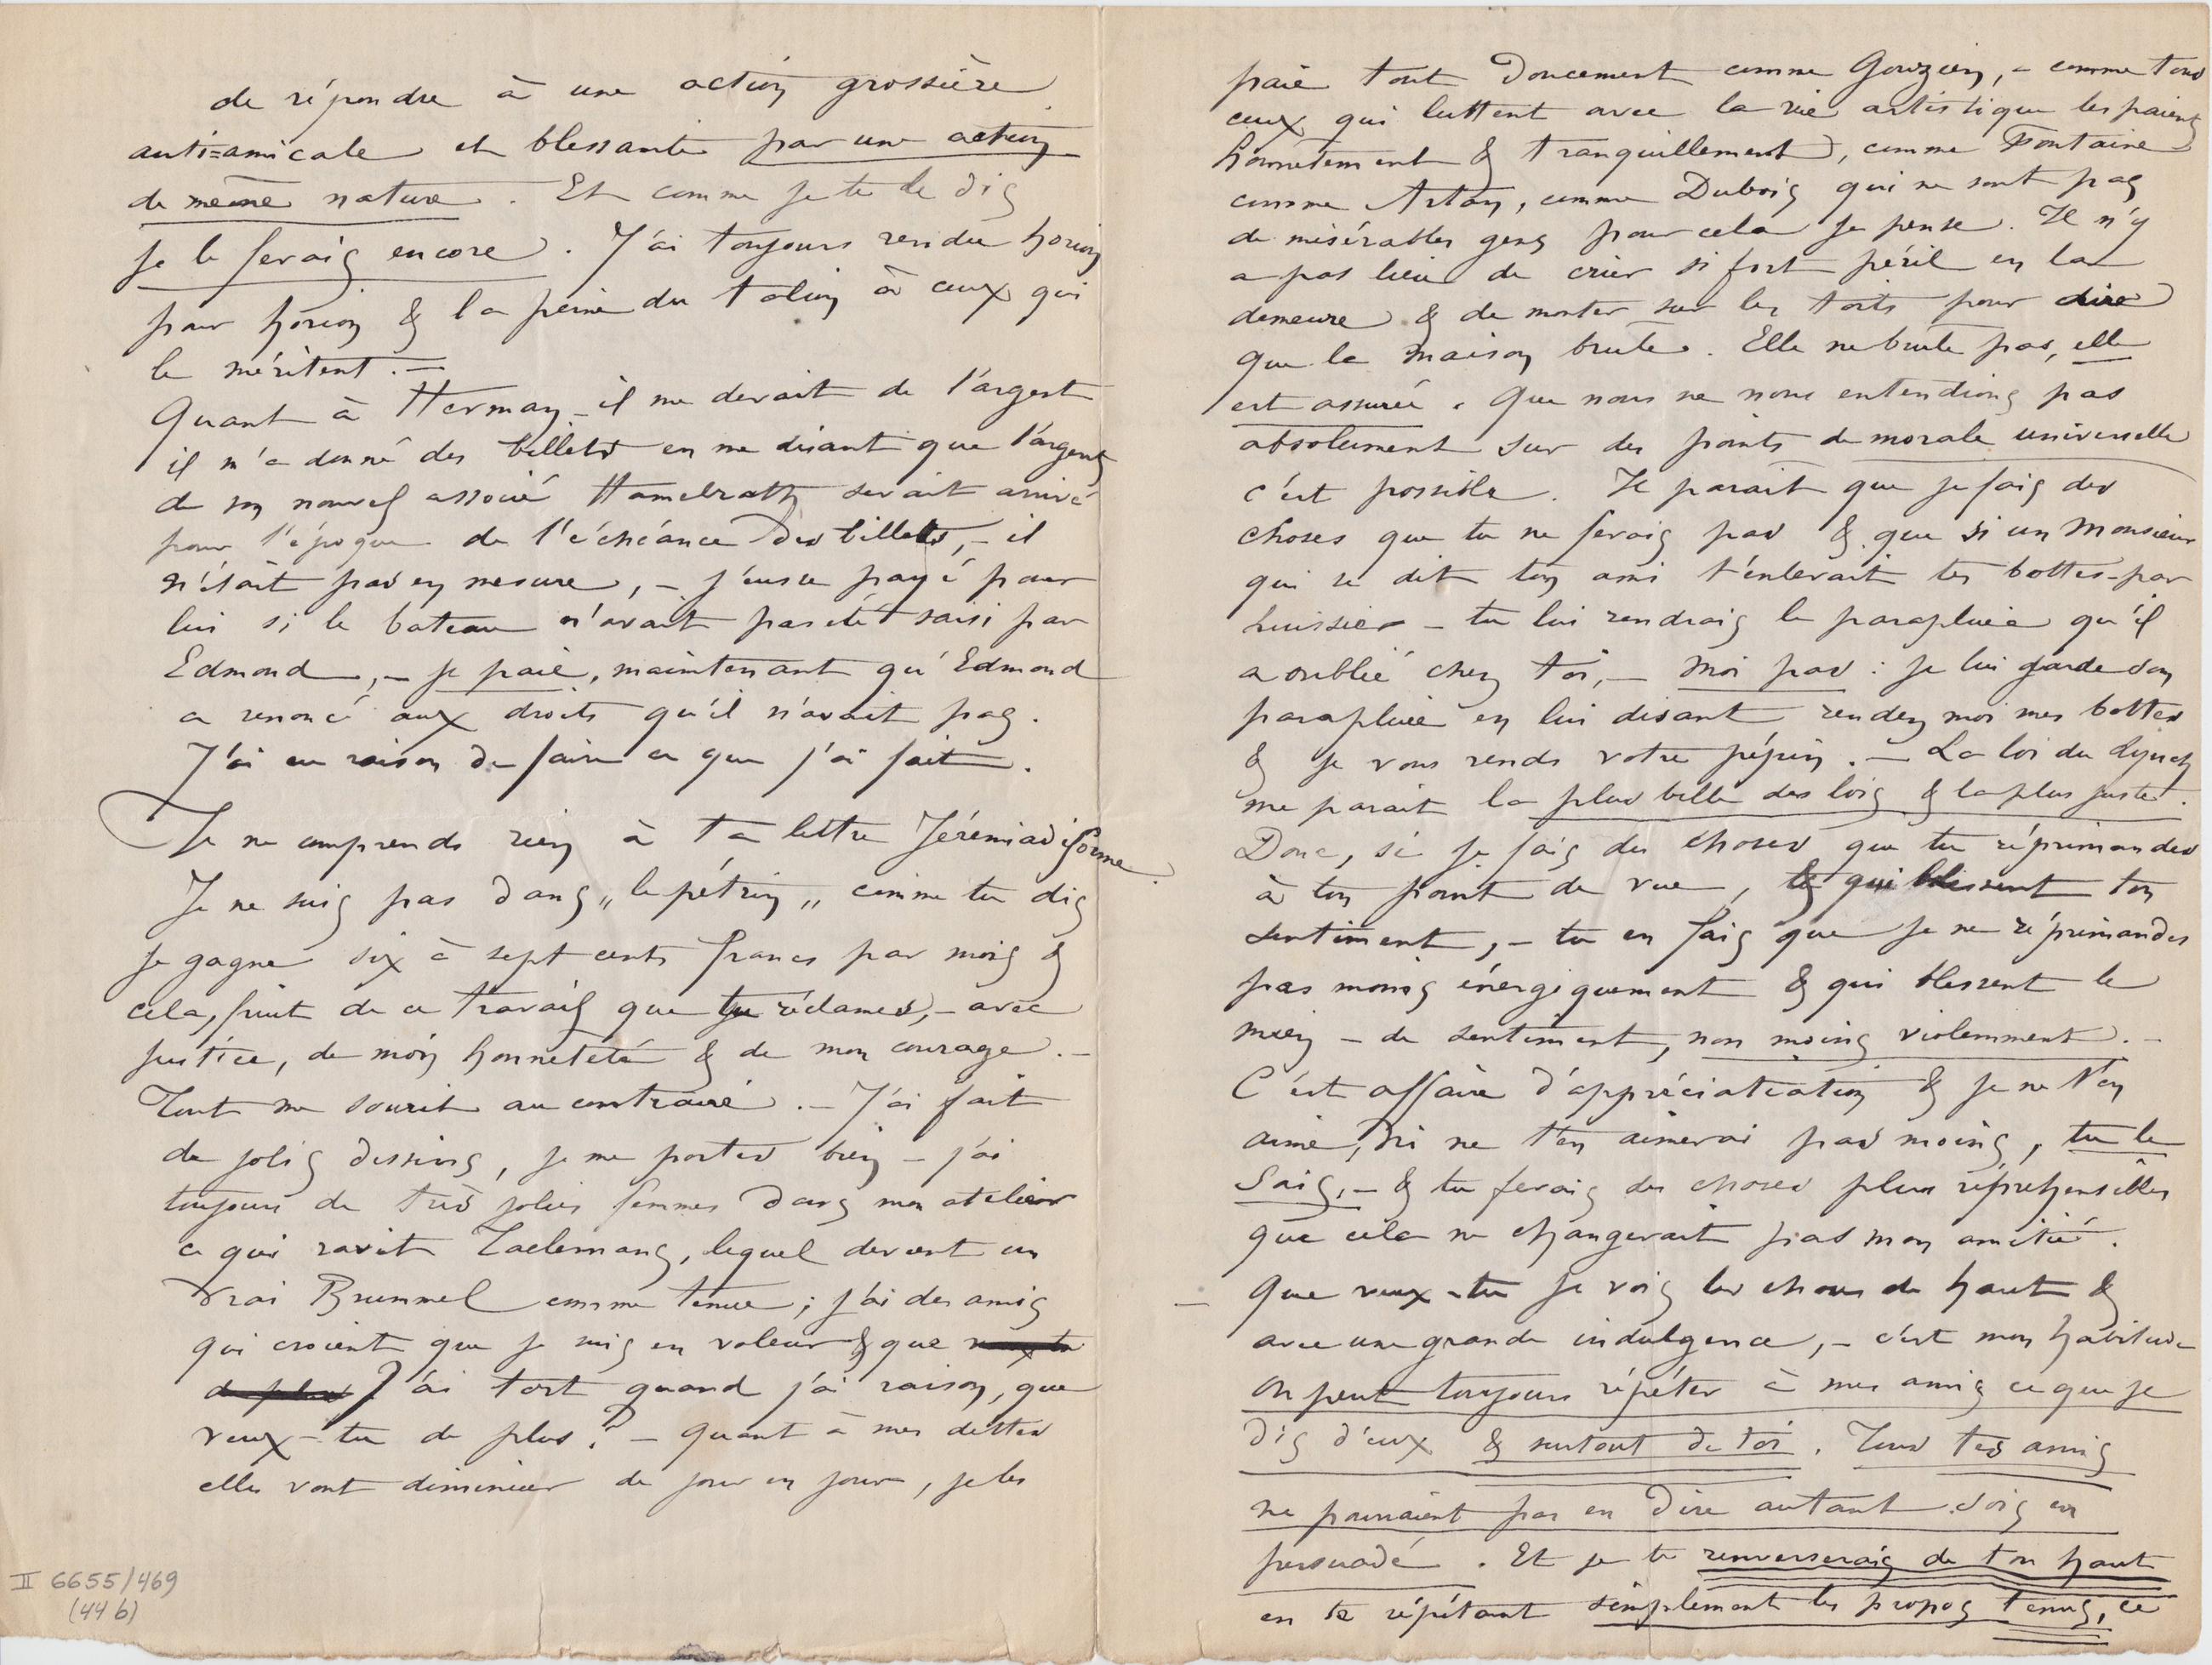 de répondre à une action grossière
anti-amicale et blessante par une action
de même nature. Et comme je te le dis
je le ferais encore. J'ai toujours rendu horion
pour horion & la peine du talion à ceux qui
le méritent. =
Quant à Herman – il me devait de l'argent
il m'a donné des billets en me disant que l'argent
de son nouvel associé Hamelrath serait arrivé
pour l'époque de l'échéance des billets, – il
n'était pas en mesure, – j'eusse payé pour
lui si le bateau n'avait pas été saisi par
Edmond, – je paie, maintenant qu'Edmond
a renoncé aux droits qu'il n'avait pas.
J'ai eu raison de faire ce que j'ai fait.
Je ne comprends rien à ta lettre Jérémiadiforme.
Je ne suis pas dans „le pétrin„ comme tu dis
je gagne six à sept cents francs par mois &
cela, fruit de ce travail que tu réclames, – avec
justice, de mon honnêteté & de mon courage. –
Tout me sourit au contraire. – J'ai fait
de jolis dessins, je me portes bien – j'ai
toujours de très jolies femmes dans mon atelier
ce qui ravit Taelemans, lequel devient un
vrai Brummel comme tenue ; j'ai des amis
qui croient que je suis en valeur & que
j'ai tort quand j'ai raison, que
veux-tu de plus ? – Quant à mes dettes
elles vont diminuer de jour en jour, je les
II 6655/469
(44 b)
paie tout doucement comme Gouzien, – comme tous
ceux qui luttent avec la vie artistique les paient
honnêtement & tranquillement, comme Fontaine
comme Artan, comme Dubois qui ne sont pas
de misérables gens pour cela je pense. Il n'y
a pas lieu de crier si fort péril en la
demeure & de monter sur les toits pour dire
que la maison brûle. Elle ne brûle pas, elle
est assurée. Que nous ne nous entendions pas
absolument sur des points de morale universelle
c'est possible. Il parait que je fais des
choses que tu ne ferais pas & que si un Monsieur
qui se dit ton ami t'enlevait tes bottes par
huissier – tu lui rendrais le parapluie qu'il
a oublié chez toi, – moi pas : je lui garde son
parapluie en lui disant rendez moi mes bottes
& je vous rends votre pépin. – La loi du Lynch
me parait la plus belle des lois & la plus juste.
Donc, si je fais des choses que tu réprimandes
à ton point de vue, & qui blessent ton
sentiment, – tu en fais que je ne réprimandes
pas moins énergiquement & qui blessent le
mien – de sentiment, non moins violemment. –
C'est affaire d'appréciatiation & je ne t'en
aime, ni ne t'en aimerai pas moins, tu le
sais, – & tu ferais des choses plus répréhensibles
que cela ne changerait pas mon amitié.
– Que veux-tu je vois les choses de haut &
avec une grande indulgence, – c'est mon habitude
On peut toujours répéter à mes amis ce que je
dis d'eux & surtout de toi. Tous tes amis
ne pourraient pas en dire autant. Sois en
persuadé. Et je te renverserais de ton haut
en te répétant simplement les propos tenus, ce